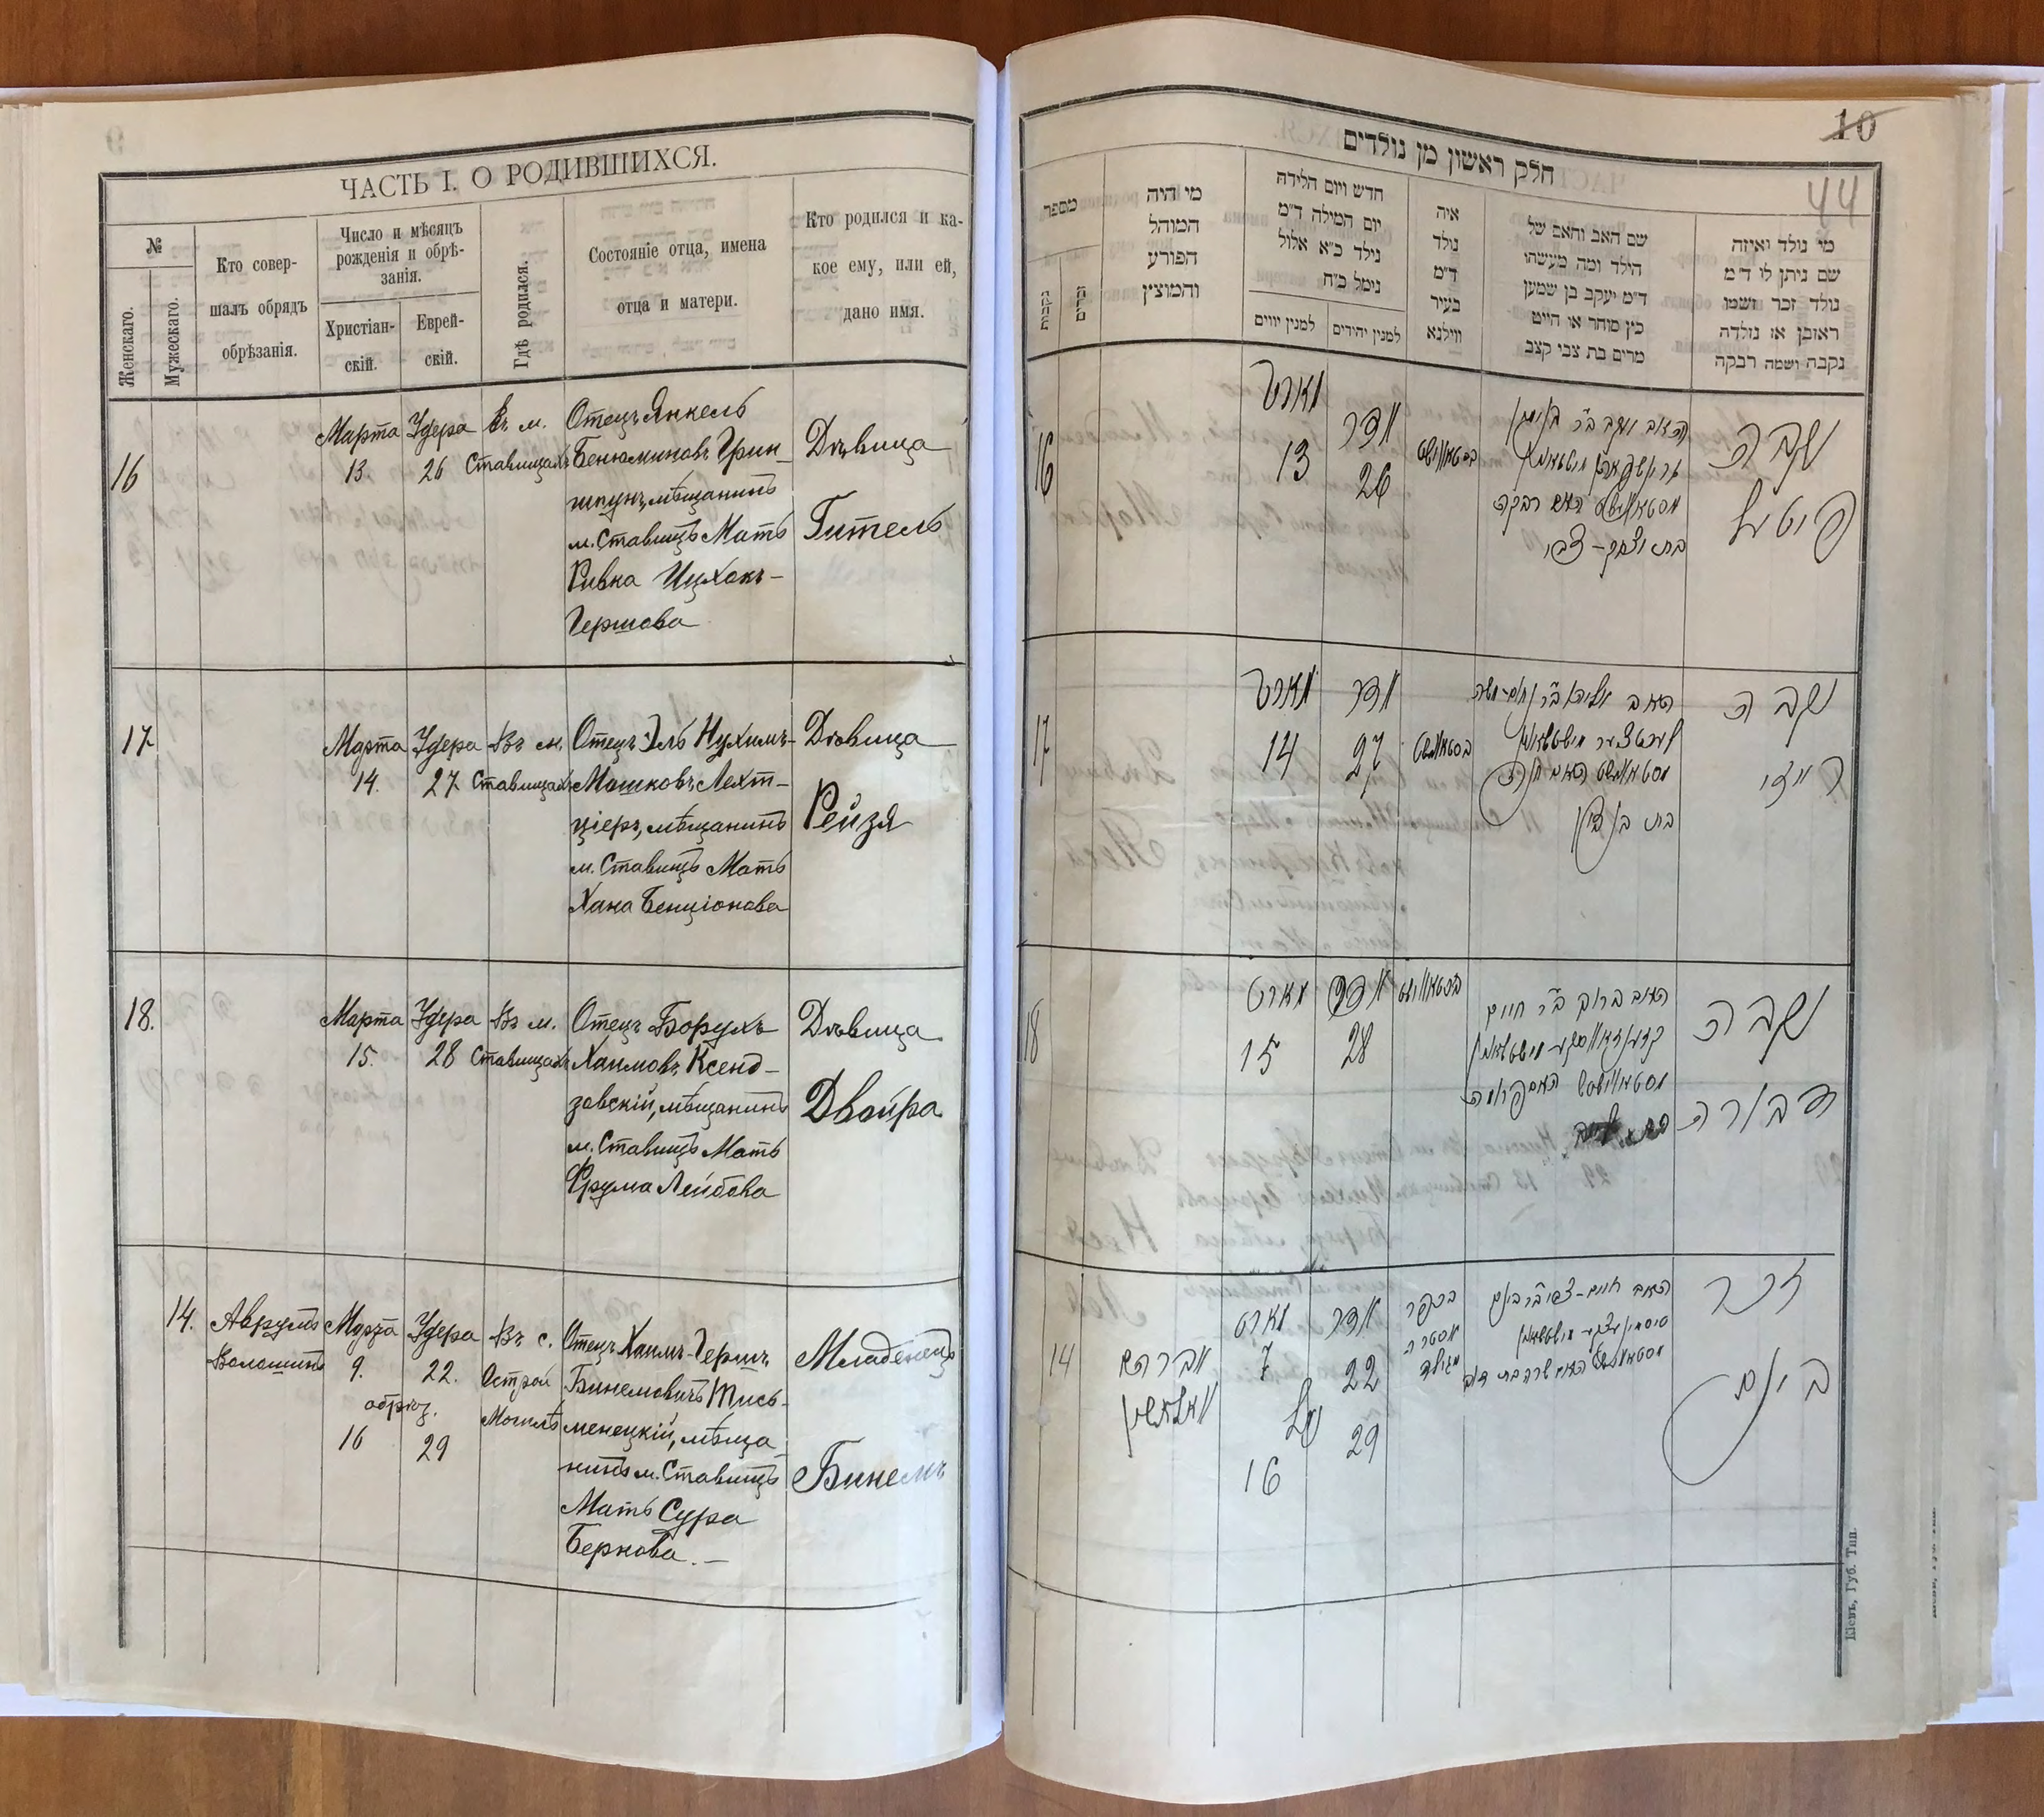 ЧАСТЬ I. О РОДИВШИХСЯ.
№
Женскаго.
Мужескаго.
Кто совер-
шалъ обрядъ
обрѣзанія.
Число и мѣсяцъ
рожденія и обрѣ-
занія.
Христіан-
скій.
Еврей-
скій.
Гдѣ родился.
Состояніе отца, имена
отца и матери.
Кто родился и ка-
кое ему, или ей,
дано имя.
16
Марта
13.
Удера
26
Въ м.
Ставищахъ
Отецъ Янкель
Бенюминовъ Грин-
шпунъ, мѣщанинъ
м. Ставищъ Мать
Ривка Ицхокъ-
Гершова
Дѣвица
Гитель
17
Марта
14.
Удера
27
Въ м.
Ставищахъ
Отецъ Эль Нухимъ-
Мошковъ Лехт-
ціеръ, мѣщанинъ
м. Ставищъ Мать
Хана Бенціонова
Дѣвица
Рейзя
18.
Марта
15.
Удера
28
Въ м.
Ставищахъ
Отецъ Борухъ
Хаимовъ Ксенд-
зовскій, мѣщанинъ
м. Ставищъ Мать
Фрума Лейбова
Дѣвица
Двойра
14.
Аврумъ
Волошинъ
Марта
9.
обрѣз.
16
Удера
22.
29
Въ с.
Острой
Могилѣ
Отецъ Хаимъ-Гершъ
Бинемовичъ Тись-
менецкій, мѣща-
нинъ м. Ставищъ
Мать Сура
Беркова. –
Младенецъ
Бинемъ
10
44
חלק ראשון מן נולדים
מי נולד ואיזה
שם ניתן לו ד״מ
נולד זכר ושמו
ראובן או נולדה
נקבה ושמה רבקה
שם האב והאם של
הילד ומה מעשהו
ד״מ יעקב בן שמעון
כין סוחר או חייט
מרים בת צבי קצב
איה
נולד
ד״מ
בעיר
ווילנא
חדש ויום הלידה
יום המילה ד״מ
נולד כ״א אלול
נימל כ״ח
למנין יהודים
למנין יווים
מי היה
המוהל
הפורע
והמוצץ
מספר
זכרים
נקבות
נקבה
גיטעל
האם רבקה
אדר
26
מארט
13
16
נקבה
רייזי
בת בן ציון
אדר
27
מארט
14
17
נקבה
דבורה
האב ברוך ב״ר חיים
אדר
28
מארט
15
18
זכר
בינם
האב חיים-צבי ב״ר בינם
בכפר
אסטרה
מגילה
אדר
22
29
מארט
7
נמול
16
אברהם
וואלאשין
14
Кіевъ, Губ. Тип.